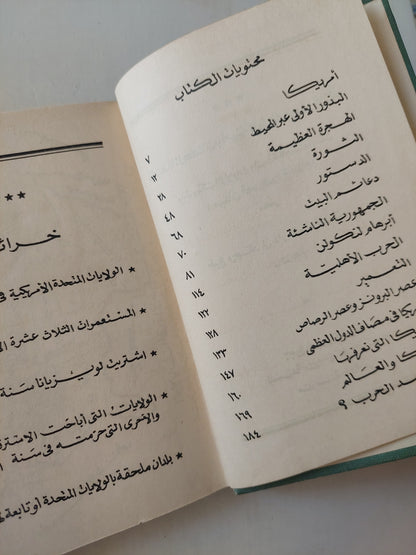 محتويات الكتاب
أمريكا ٧
البذور الأولى عبر المحيط ١٢
الهجرة العظيمة ٢٨
الثورة ٤٨
الدستور ٦٨
دعائم البيت ٧٠
الجمهورية الناشئة ٨١
أبرهام لنكولن ١١٤
الحرب الأهلية ١٢٢
التعمير ١٢٨
عصر البرونز وعصر الرصاص ١٣٣
في مصاف الدول العظمى ١٤٧
التى نعرفها ١٦٠
والعالم ١٦٩
الحرب ؟ ١٨٤
★ ★
★ الولايات المتحدة الأمريكية
★ المستعمرات الثلاث عشرة
★ اشتريت لويزيانا سنة
★ الولايات التى أباحت
والأخرى التى حرمته فى سنة
★ بلدان ملحقة بالولايات المتحدة أو تابعة